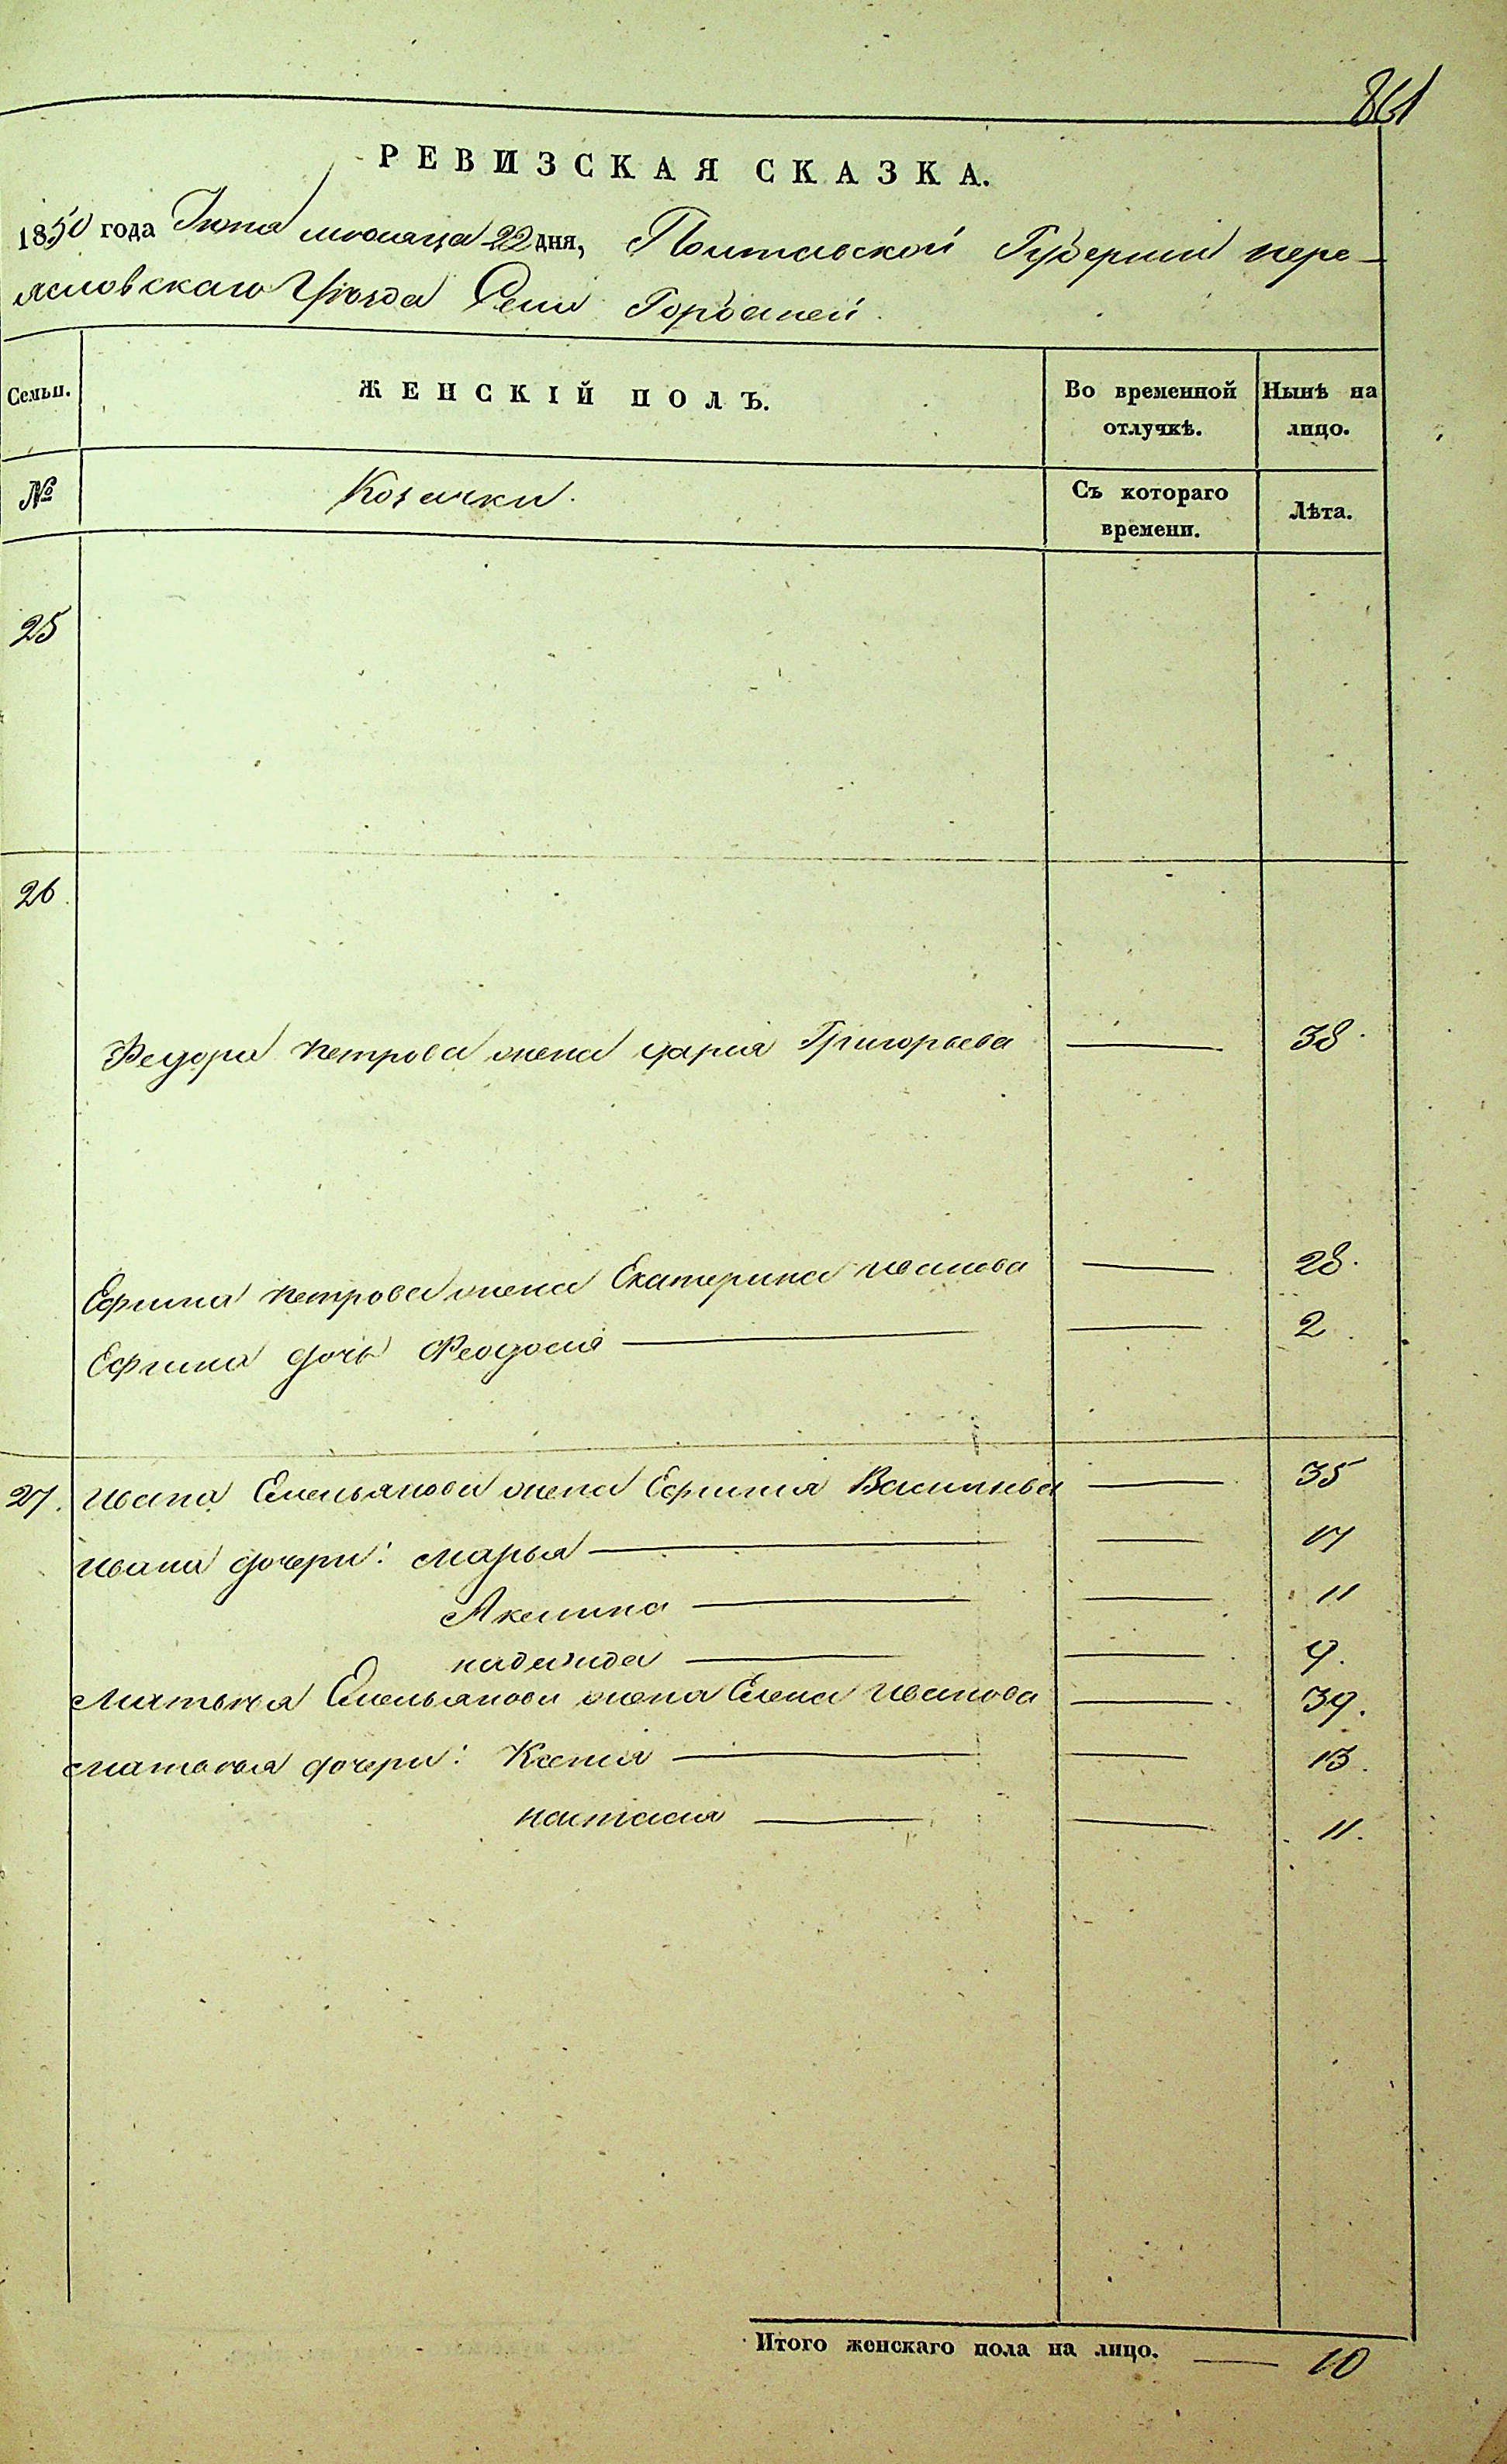 861
РЕВИЗСКАЯ СКАЗКА.
1850 года Іюня месяца 22 дня, Полтавской Губерніи пере-
яславскаго Уѣзда Села Горбаней.
Семьи. ЖЕНСКІЙ ПОЛЪ. Во временной отлучкѣ. Нынѣ на лицо.
№ Козачки. Съ котораго времени. Лѣта.
25
26
Федора петрова жена дарія Григорьева — 38.
Ефима петрова жена Екатерина иванова — 28.
Ефима дочь Феодосія — — 2.
27. ивана Емельянова жена Ефимія Васильева — 35
ивана дочери: марья — — 17
Акилина — — 11
надежда — — 9.
матвея Емельянова жена Елена иванова — 39.
матвея дочери: Ксенія — — 13.
настасия — — 11.
Итого женскаго пола на лицо. — 10